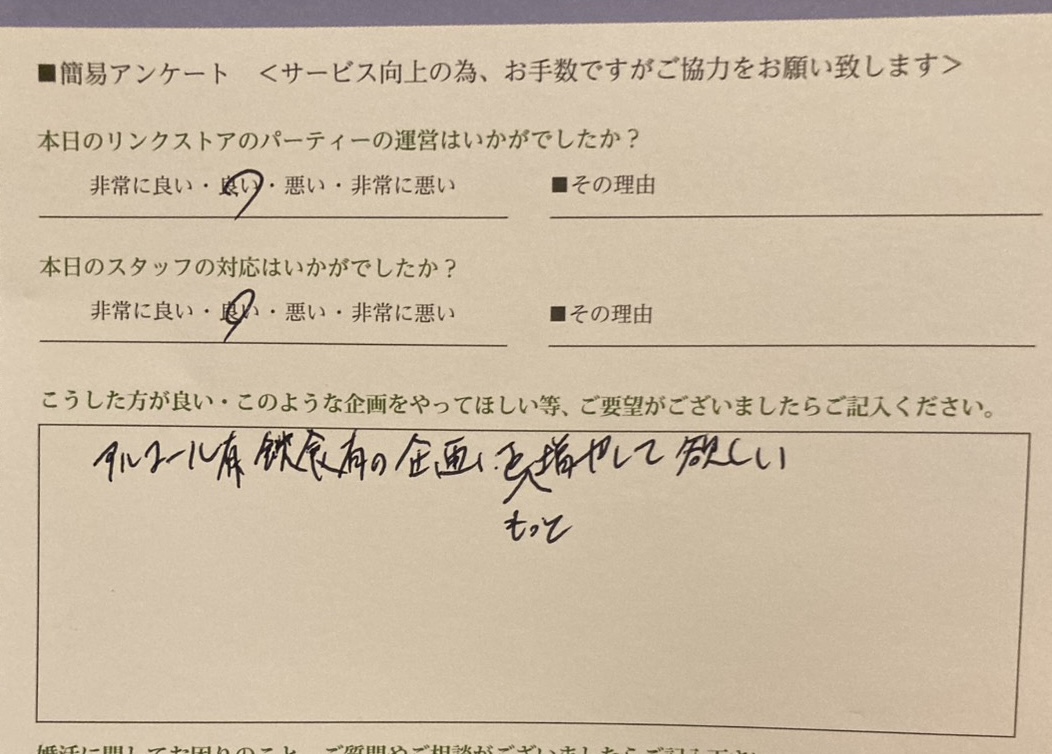 ■簡易アンケート　＜サービス向上の為、お手数ですがご協力をお願い致します＞
本日のリンクストアのパーティーの運営はいかがでしたか？
非常に良い・良い・悪い・非常に悪い　■その理由
本日のスタッフの対応はいかがでしたか？
非常に良い・良い・悪い・非常に悪い　■その理由
こうした方が良い・このような企画をやってほしい等、ご要望がございましたらご記入ください。
アルコール有 飲食有の企画を増やして欲しい
もっと
婚活に関してお困りのこと、ご質問やご相談がございましたらご記入下さい